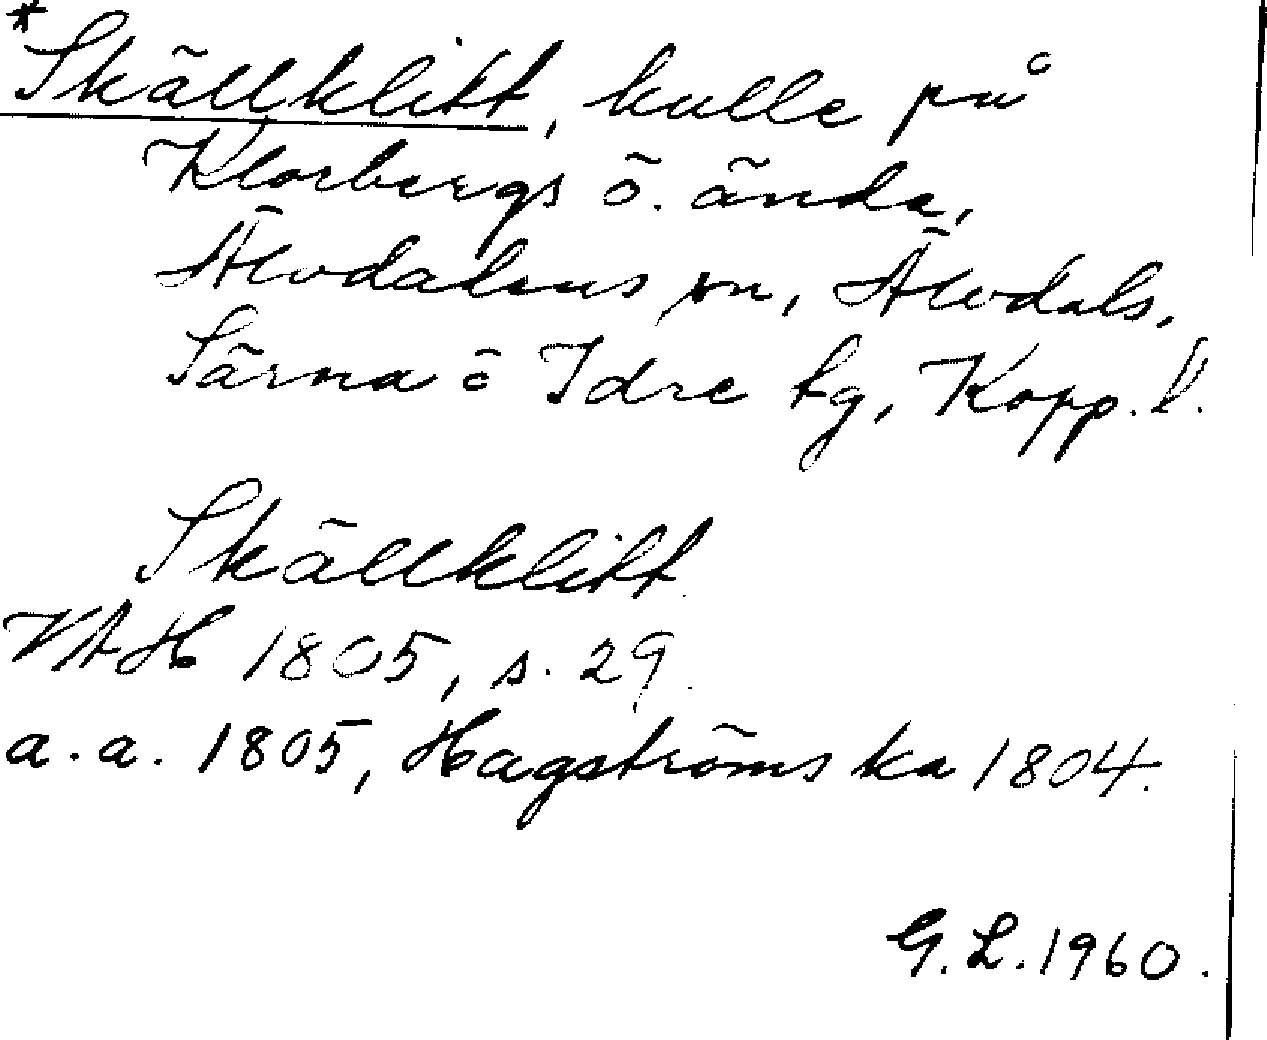 *Skällklitt, kulle på
Klorbergs ö. ände,
Älvdalens sn, Älvdals,
Särna o Idre tg, Kopp. l.
Skällklitt
VAH 1805, s. 29.
a. a. 1805, Hagströms ka 1804.
G. L. 1960.